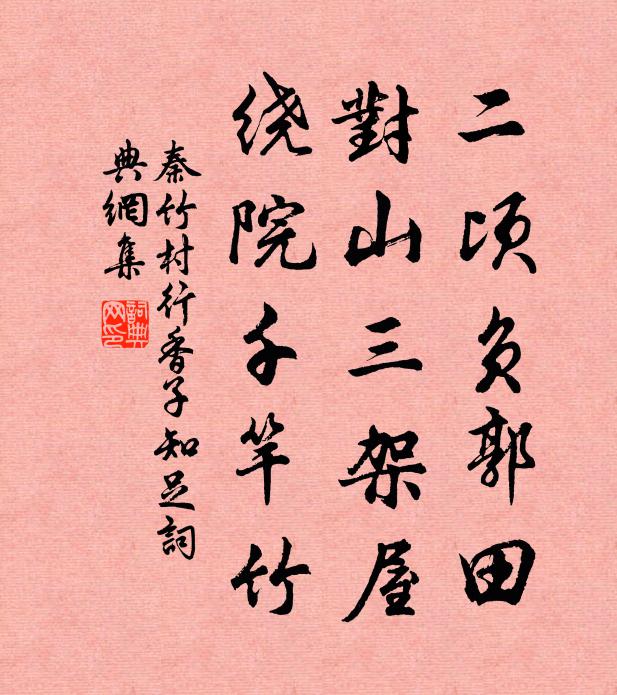 二頃负郭田
對山三架屋
绕院千竿竹
秦竹村行香子知足詞
典網集
詞典网印